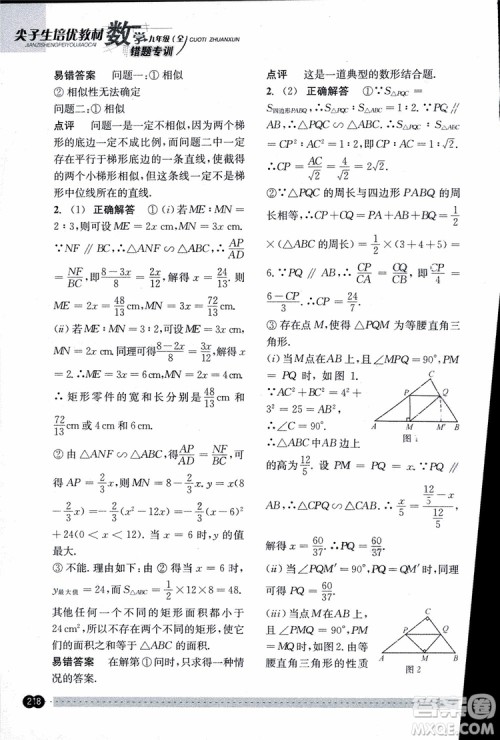 尖子生培优教材 数学·九年级(全) CUOTI ZHUANXUN
JIANZISHENGPEIYOUJIAOCAI 错题专训
易错答案 问题一:① 相似
② 相似性无法确定
问题二:① 相似
点评 问题一是一定不相似,因为两个梯
形的底边不成比例,而问题二中一定存
在平行于梯形底边的一条直线,使截得
的两个小梯形相似.但这条直线一定不
是梯形中位线所在的直线.
2.(1) 正确解答 ①(i)若 ME:MN=
2:3,则可设 ME=2x cm,MN=3x cm.
∵NF∥BC,∴△ANF∽△ABC.∴AP/AD
=NF/BC,即(8-3x)/8=2x/12.解得 x=24/13.即
ME=2x=48/13 cm,MN=3x=72/13 cm.
(ii) 若 ME:MN=3:2,可设 ME=
3x cm,MN=2x cm.同理可得(8-2x)/8=3x/12.
解得 x=2.即 ME=6 cm,MN=4 cm.
∴矩形零件的宽和长分别是48/13 cm 和
72/13 cm或 4 cm 和 6 cm.
② 由 △ANF∽△ABC,得AP/AD=NF/BC,可
得 AP=2/3x,MN=8-2/3x,y=x(8-
2/3x)=-2/3(x²-12x)=-2/3(x-6)²
+24(0<x<12).当 x=6 时,y 的值
最大.
③ 不能.理由如下:由②可知,当 x=6
时,y最大=24,而 S△ABC=1/2×12×8=48.
其他任何一个矩形的面积都小于
24 cm²,那么两个不同的矩形面积都小
于 24,∴两个不同的矩形的面积之和不
可能等于 △ABC 的面积.
易错答案 在解第①问时,只求得一种情
况的答案.
点评 这是一道典型的数形结合题.
2.(2) 正确解答 ①∵S△PQC=
S四边形PABQ,∴S△PQC:S△ABC=1:2.∵PQ∥
AB,∴△PQC∽△ABC.∴S△PQC:S△ABC=
(CP/AC)²=1:2.即 CP:AC=1:√2.∴CP
=4/√2=2√2.
②∵△PQC 的周长与四边形 PABQ 的
周长相等,∴CP+CQ=PA+AB+BQ=
1/2(△ABC 的周长)=1/2×(3+4+5)=
6.∵PQ∥AB,∴CP/CA=CQ/CB.即CP/4=
(6-CP)/3.∴CP=24/7.
③ 存在点 M,使得 △PQM 为等腰直角三
角形.
(i) 当 M 点在 AB 上,且∠MPQ=90°,PM
=PQ 时,如图 1.
∵AC²+BC²=AB²,
∴∠C=90°.
∴△ABC 中 AB 边上
的高为12/5.设 PM=PQ=x.∵PQ∥
AB,∴△CPQ∽△CAB.∴x/5=(12/5-x)/(12/5).
解得 x=60/37.即 PQ=60/37.
(ii) 当∠PQM′=90°,QP=QM′时,
同理可得 PQ=60/37.
(iii) 当 M 点在 AB
上,且∠PMQ=90°,
PM=MQ时,如图 2.
C
P Q
A M M′ B
图 1
C
P Q
A M B
图 2
218